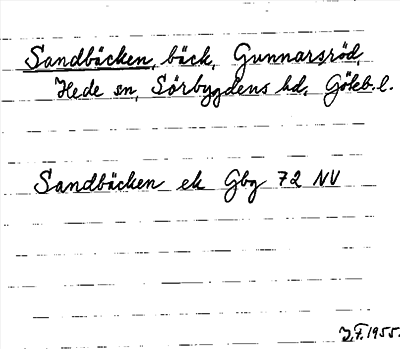 Sandbäcken, bäck, Gunnarsröd,
Hede sn, Sörbygdens hd, Göteb. l.
Sandbäcken ek Gbg 72 NV
J.F. 1955.